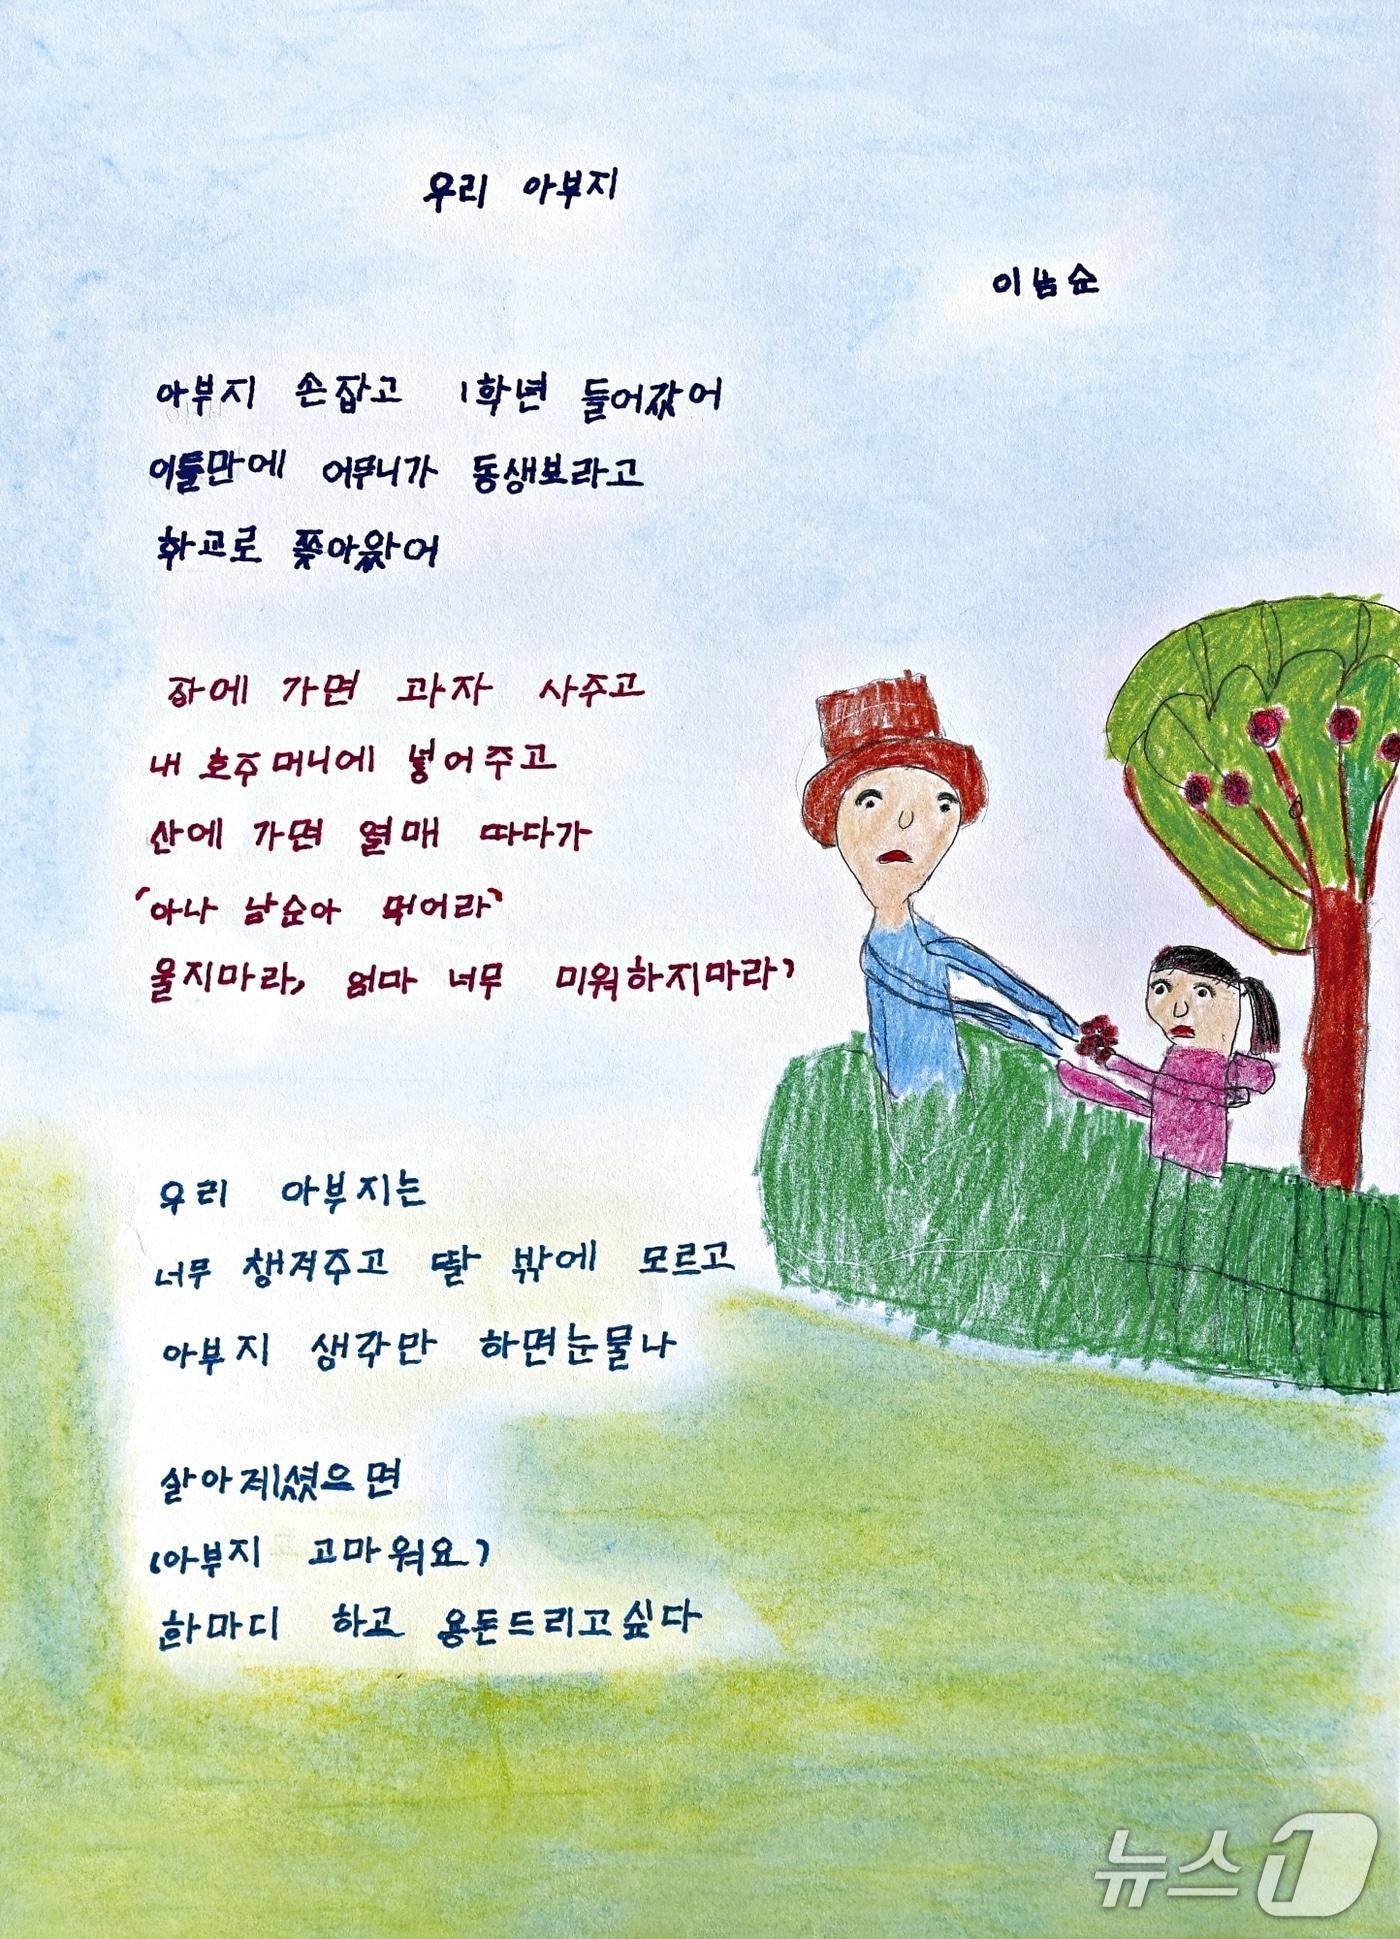 우리 아부지
이남순
아부지 손잡고 1학년 들어갔어
이틀만에 어무니가 동생보라고
학교로 쫒아왔어
장에 가면 과자 사주고
내 호주머니에 넣어주고
산에 가면 열매 따다가
'아나 남순아 먹어라'
울지마라, 엄마 너무 미워하지마라'
우리 아부지는
너무 챙겨주고 딸 밖에 모르고
아부지 생각만 하면눈물나
살아계셨으면
'아부지 고마워요'
한마디 하고 용돈드리고싶다
뉴스1